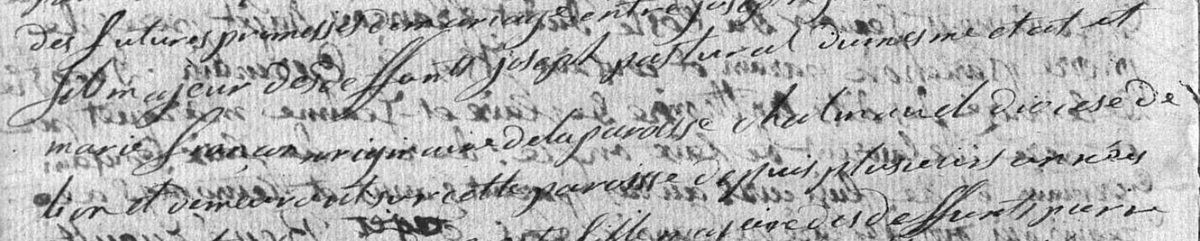 des futures promesses de mariage entre joseph
fils majeur des deffunts joseph pastural du mesme etat et
marie originaire de la paroisse chalmand diocese de
lion et demeurant sur cette paroisse depuis plusieurs années
fille majeure des deffunts pierre